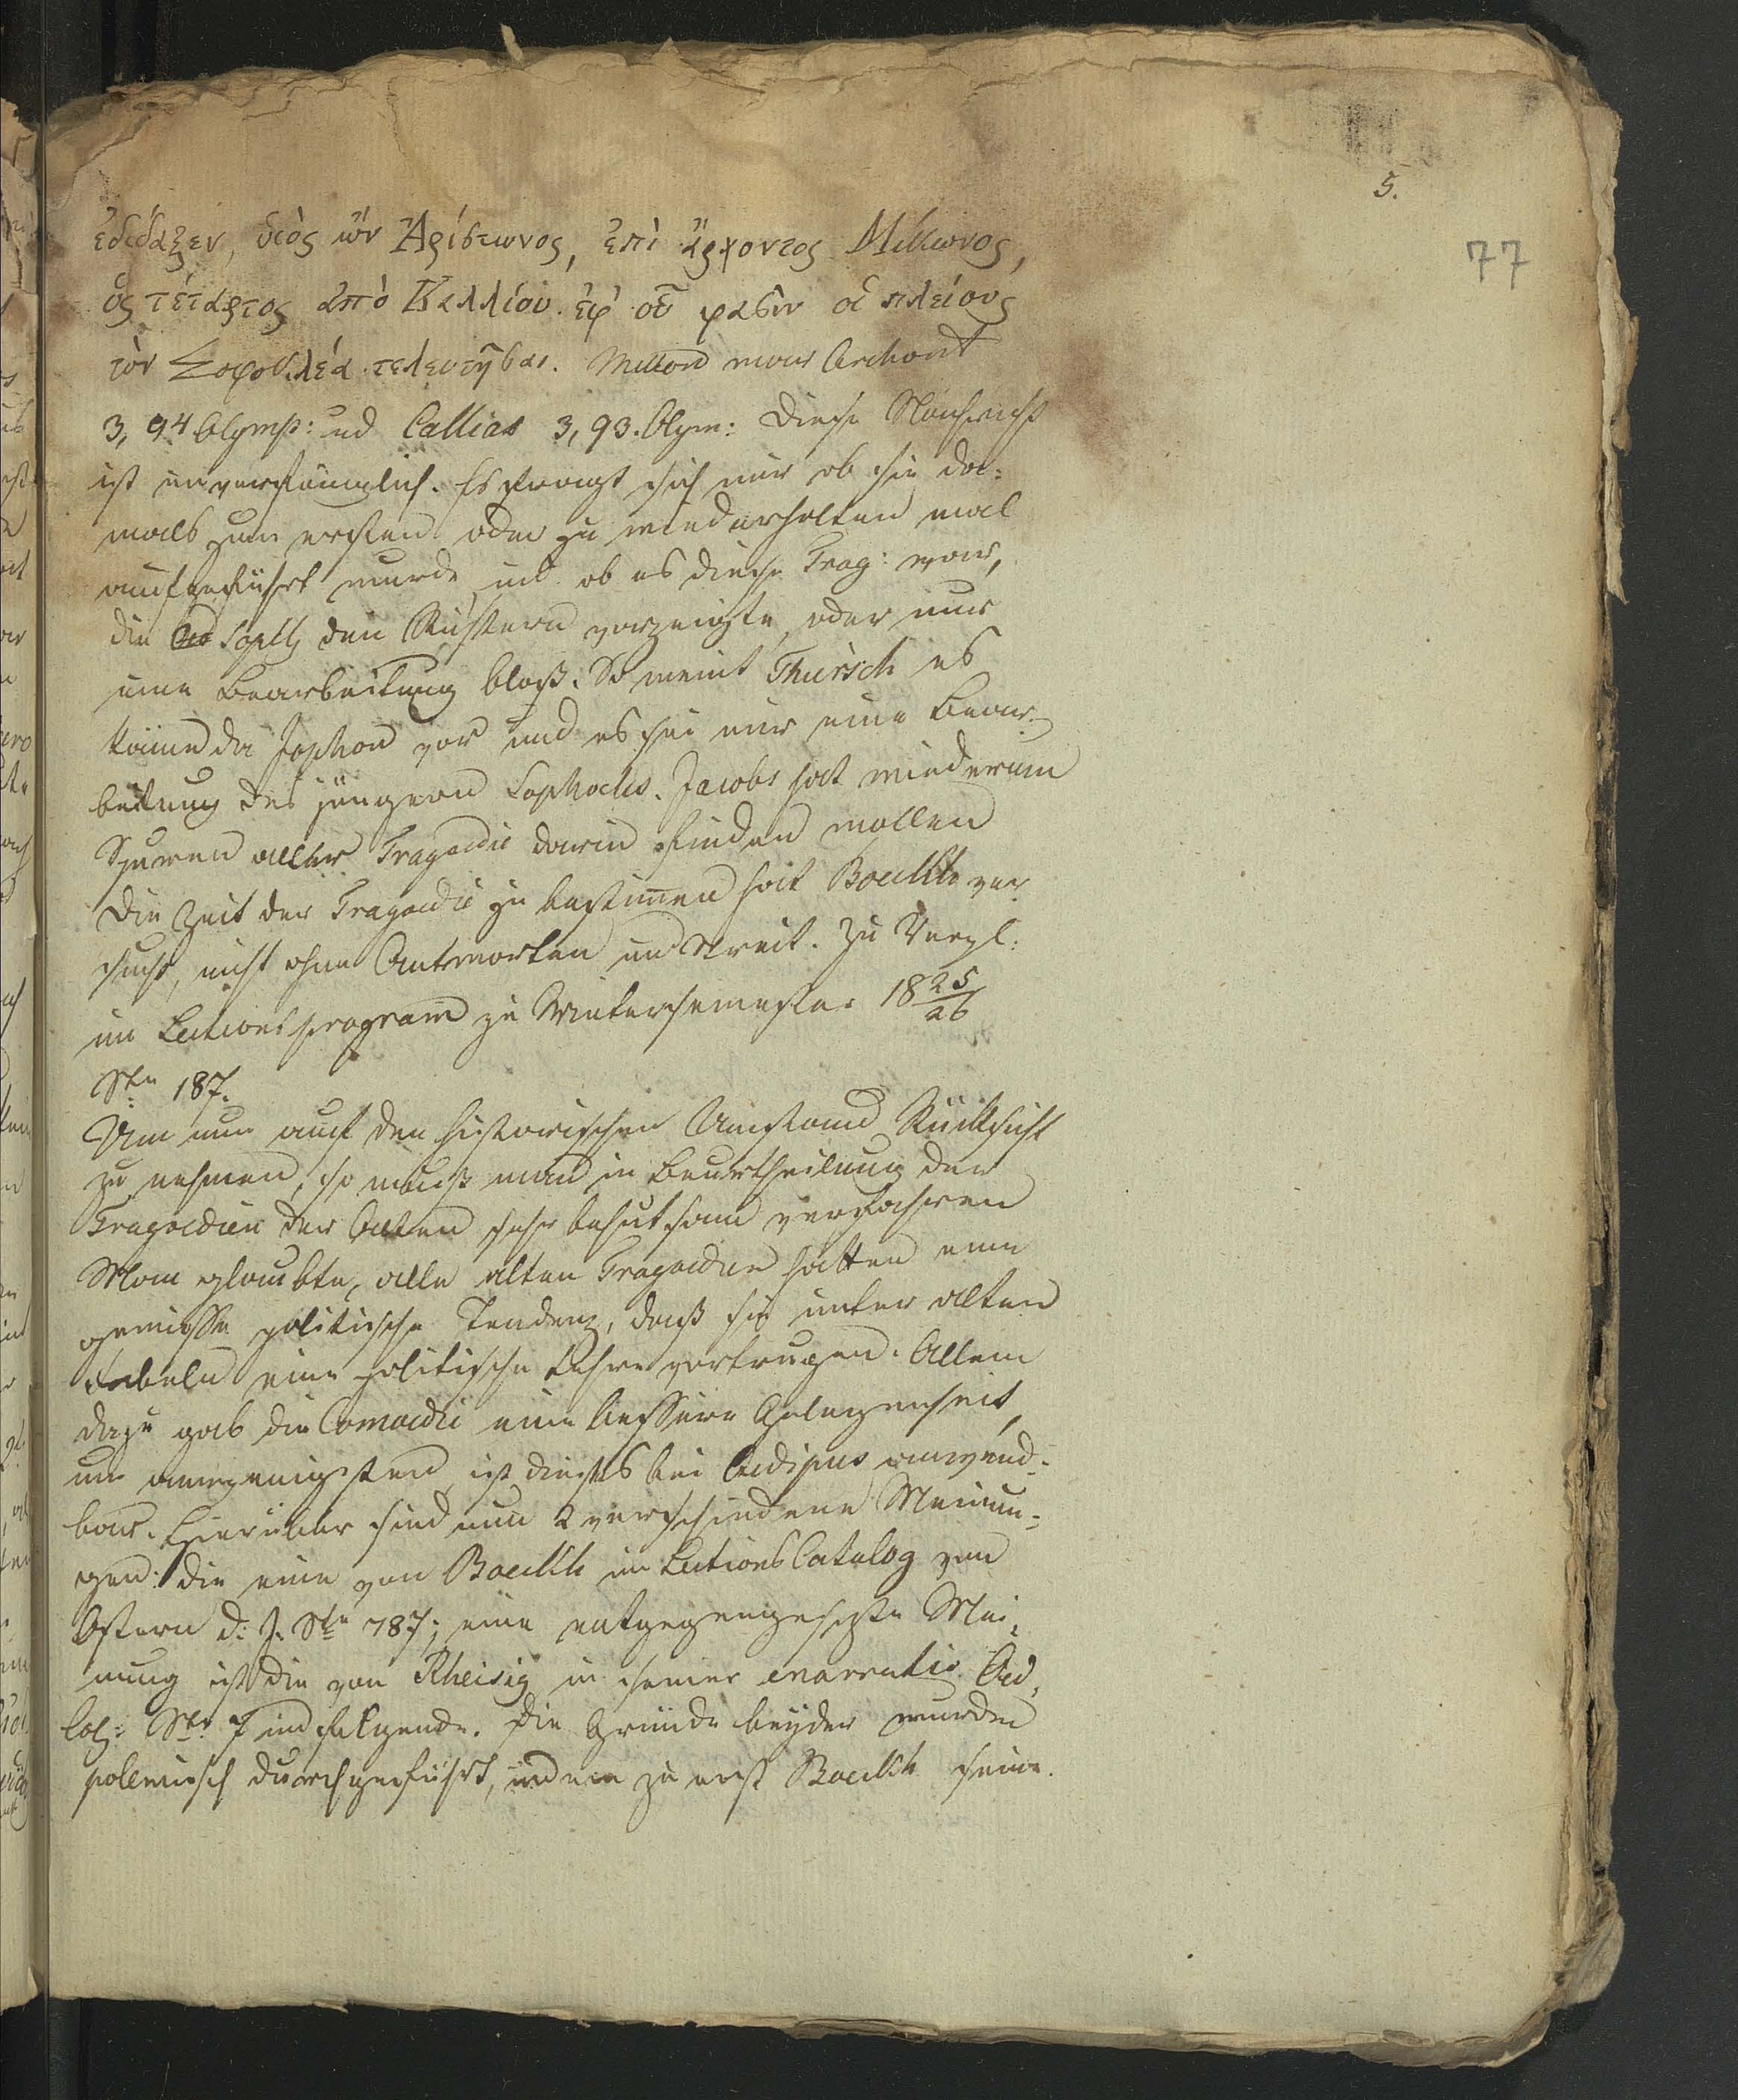 5.
77
ἐδίδαξεν, υἱὸς ὢν Ἀρίστωνος, ἐπὶ ἄρχοντος Μίκωνος,
ὃς τέταρτος ἀπὸ Καλλίου. ἐφ' οὗ φασὶν οἱ πλείους
τὸν Σοφοκλέα τελευτῆσαι. Mikon war Archont
3, 94 Olymp: und Callias 3, 93. Olym: Diese Nachricht
ist unverfänglich. Es fragt sich nur ob sie da-
mals zum ersten oder zu wiederholten mal
aufgeführt wurde und ob es diese Trag: war,
die Soph den Richtern vorzeigte, oder nur
eine Bearbeitung bloß. So meint Thirsch es
käme da Jophon vor und es sei nur eine Bear-
beitung des jüngern Sophocles. Jacobs hat wiederum
Spuren alter Tragoedie darin finden wollen
Die Zeit der Tragoedie zu bestimen hat Boeckh ver
sucht, nicht ohne Antworten und Streit. Zu Vergl:
im Lectionsprogram zu Wintersemester 18 25/26
Ste 187.
Um nun auf den historischen Umstand Rücksicht
zu nehmen, so muß man in Beurtheilung der
Tragoedien der Alten sehr behutsam verfahren
Man glaubte, alle alten Tragoedien hatten eine
gewisse politische Tendenz, daß sie unter alten
Fabeln eine politische Lehre vortrugen. Allein
dazu gab die Comoedie eine bessere Gelegenheit,
um amwenigsten ist dieses bei Oedipus anwend-
bar. Hierüber sind nun 2 verschiedene Meinun-
gen: die eine von Boeckh im Lections Catalog von
Ostern d: J. Ste 787; eine entgegengesetzte Mei-
nung ist die von Rheisig in seiner enarratio Oed,
Col: Ste 7 und folgende. Die Gründe beyder wurden
polemisch durchgeführt, indem zu erst Boeckh seine